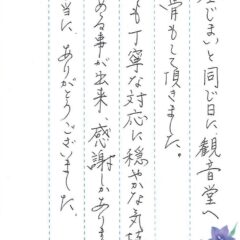 じまいと同じ日に、観音堂へ
骨もして頂きました。
も丁寧な対応に穏やかな気
める事が出来、感謝しかありま
当に、ありがとうございました。